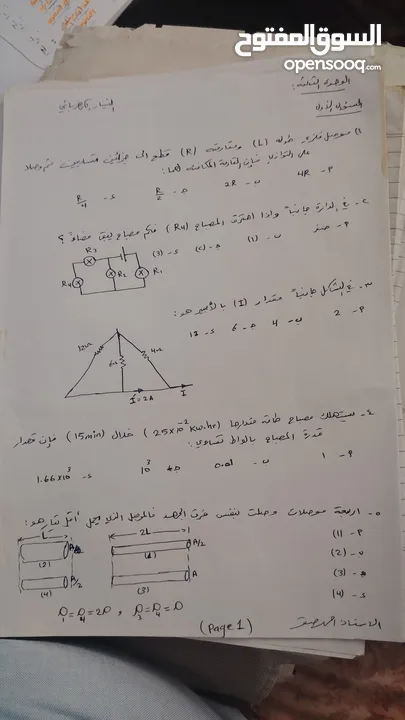 السوق المفتوح
opensooq.com
الوحدة الثالثة:
التيار الكهربائي
السؤال الأول
١) موصل فلزي طوله (L) ومقاومته (R) قطع الى جزئين متساويين ثم وصلا
على التوازي فإن المقاومة المكافئة لهما:
٢- 4R ب- 2R ج- R/2 د- R/4
٢- في الدارة جانباً إذا احترق المصباح (R4) فكم مصباح يبقى مضاءً ؟
٢- صفر ب- (1) ج- (2) د- (3)
R3
R4 R2 R1
٣- في الشكل جانباً مقدار (I) بالأمبير هو:
٢- 2 ب- 4 ج- 6 د- 12
12Ω 6Ω 4Ω
I = 2A I
٤- يستهلك مصباح طاقة مقدارها (25x10⁻² kw.hr) خلال (15min) فإن مقدار
قدرة المصباح بالواط تساوي:
٢- 1 ب- 0.01 ج- 10³ د- 1.66x10³
٥- اربعة موصلات وصلت بنفس فرق الجهد فالموصل الذي يحمل أقل تيار هو:
٢- (1)
ب- (2)
ج- (3)
د- (4)
L 2L
A/2
(2) (1)
A/2 A
(4) (3)
ρ1 = ρ4 = 2ρ , ρ3 = ρ4 = ρ
(Page 1)
الاستاذ